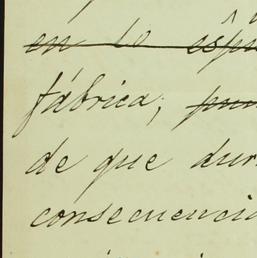 en lo espu
fábrica;
de que dur
consecuenci